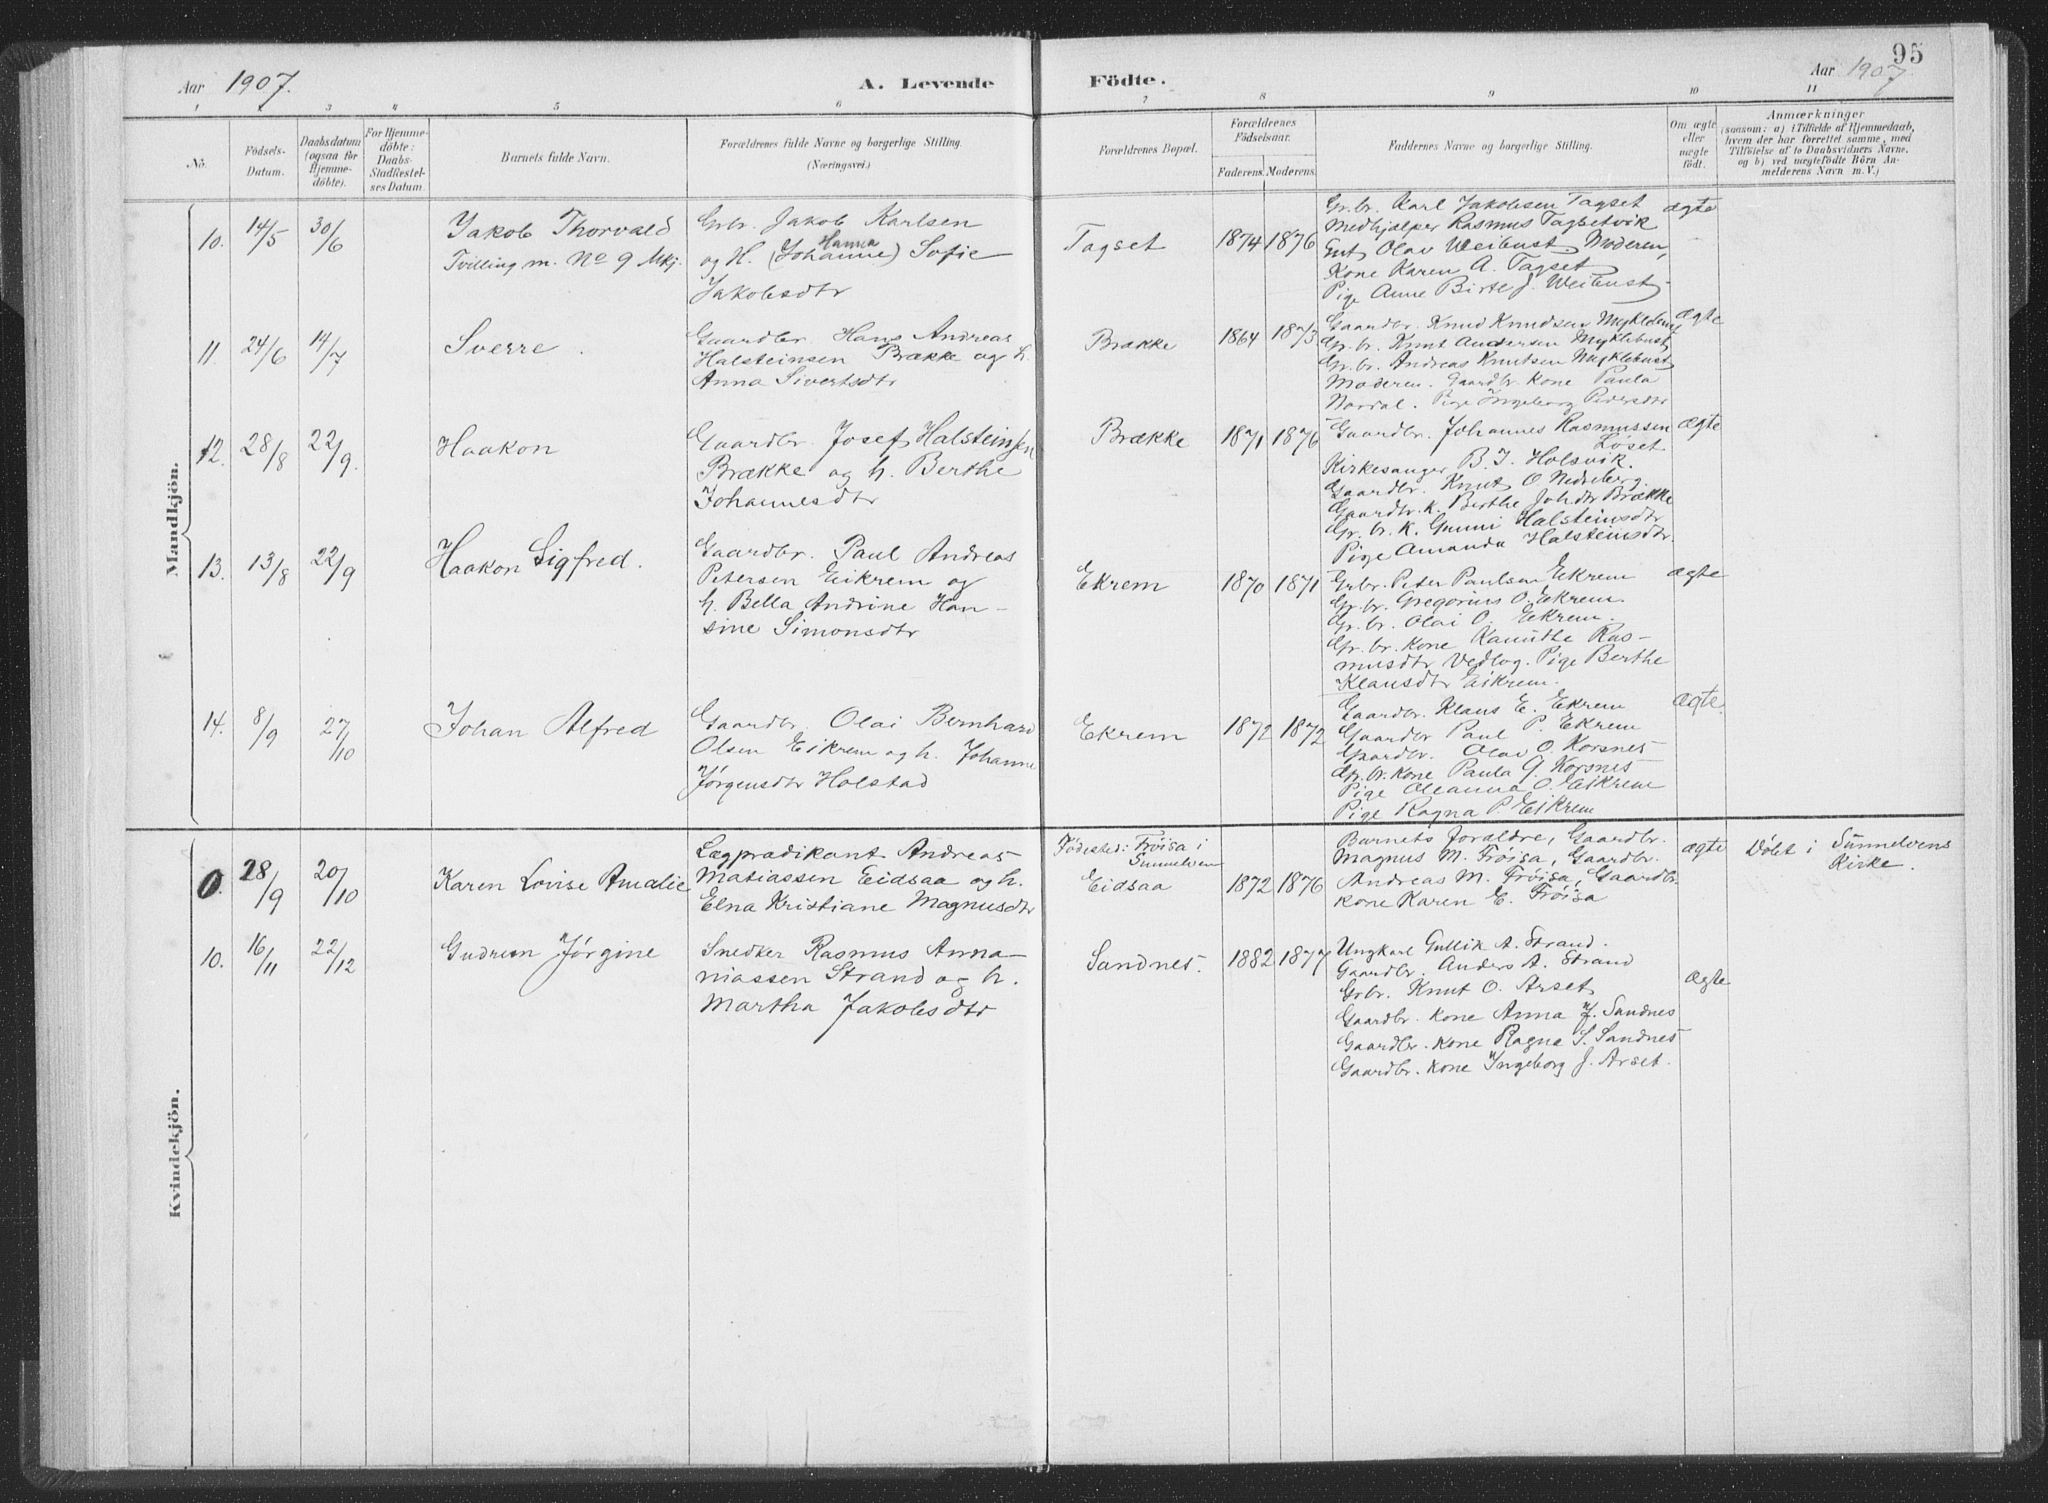 95
Aar 1907. A. Levende Födte. Aar 1907.
1 2 3 4 5 6 7 8 9 10 11
No.
Födsels-
Datum.
Daabsdatum
(ogsaa for
Hjemme-
döbte).
For Hjemme-
döbte:
Daabs-
Stadfestel-
ses Datum.
Barnets fulde Navn.
Forældrenes fulde Navne og borgerlige Stilling.
(Næringsvei.)
Forældrenes Bopæl.
Forældrenes
Födselsaar.
Faderens. Moderens.
Faddernes Navne og borgerlige Stilling.
Om ægte
eller
uægte
födt.
Anmærkninger
(saasom: a) i Tilfælde af Hjemmedaab,
hvem der har forrettet samme, med
Tilföielse af to Daabsvidners Navne,
og b) ved uægtefödte Börn An-
melderens Navn m. V.)
Mandkjön.
10. 14/5 30/6
Jakob Thorvald
Tvilling m. No 9 Mkj.
Grbr. Jakob Karlsen
Hanna
og H. (Johanne) Sofie
Jakobsdtr
Tagset 1874 1876
Gr.br. Karl Jakobsen Tagset
Medhjælper Rasmus Tagsetvik
Gut Olav Weibust. Moderen,
Kone Karen A. Tagset
Pige Anne Birte J. Weibust
ægte
11. 24/6 14/7
Sverre.
Gaardbr. Hans Andreas
Halsteinsen Brække og h.
Anna Sivertsdtr
Brække 1864 1873
Gaardbr. Knud Knudsen Myklebust
Gr.br. Knut Andersen Myklebust
Gr.br. Andreas Knutsen Myklebust
Moderen. Gaardbr. Kone Paula
Nordal. Pige Ingeborg Pedersdtr
ægte
12. 28/8 22/9.
Haakon
Gaardbr. Josef Halsteinsen
Brække og h. Berthe
Johannesdtr
Brække 1871 1876
Gaardbr. Johannes Rasmussen
Løset
Kirkesanger B. J. Holsvik.
Gaardbr. Knut O Nedreberg.
Gaardbr. K. Berthe Johdtr Brække
Gr. br. K. Gunni Halsteinsdtr
Pige Amanda Halsteinsdtr.
ægte
13. 13/8 22/9
Haakon Sigfred.
Gaardbr. Paul Andreas
Petersen Eikrem og
h. Bella Andrine Han-
sine Simonsdtr
Ekrem 1870 1871
Grbr. Peter Paulsen Ekrem
Gr.br. Gregorius O. Ekrem.
Gr. br. Olai O. Ekrem.
Gr. br. Kone Kanutte Ras-
musdtr Vedlog. Pige Berthe
Klausdtr Eikrem.
ægte
14. 8/9 27/10
Johan Alfred
Gaardbr. Olai Bernhard
Olsen Eikrem og h. Johanne
Jørgensdtr Holstad
Ekrem 1872 1872
Gaardbr. Klaus E. Ekrem
Gaardbr Paul P. Ekrem
Gaardbr. Olav O. Korsnes
Gr.br. Kone Paula G. Korsnes
Pige Oleanna O. Eikrem
Pige Ragna P. Eikrem
ægte.
Kvindekjön.
0. 28/9 20/10
Karen Lovise Amalie
Lægprædikant Andreas
Matiassen Eidsaa og h.
Elna Kristiane Magnusdtr
Fødested: Frøisa i
Sunnelven
Eidsaa 1872 1876
Barnets forældre, Gaardbr.
Magnus M. Frøisa, Gaardbr.
Andreas M. Frøisa, Gaardbr.
Kone Karen E. Frøisa
ægte
Døbt i Sunnelvens
Kirke.
10. 16/11 22/12
Gudrun Jørgine
Snedker Rasmus Anna-
niassen Strand og h.
Martha Jakobsdtr
Sandnes. 1882 1877
Ungkarl Gullik A. Strand.
Gaardbr. Anders A. Strand
Grbr. Knut O. Arset
Gaardbr. Kone Anna J. Sandnes
Gaardbr. Kone Ragna S. Sandnes
Gaardbr. Kone Ingeborg J. Arset.
ægte